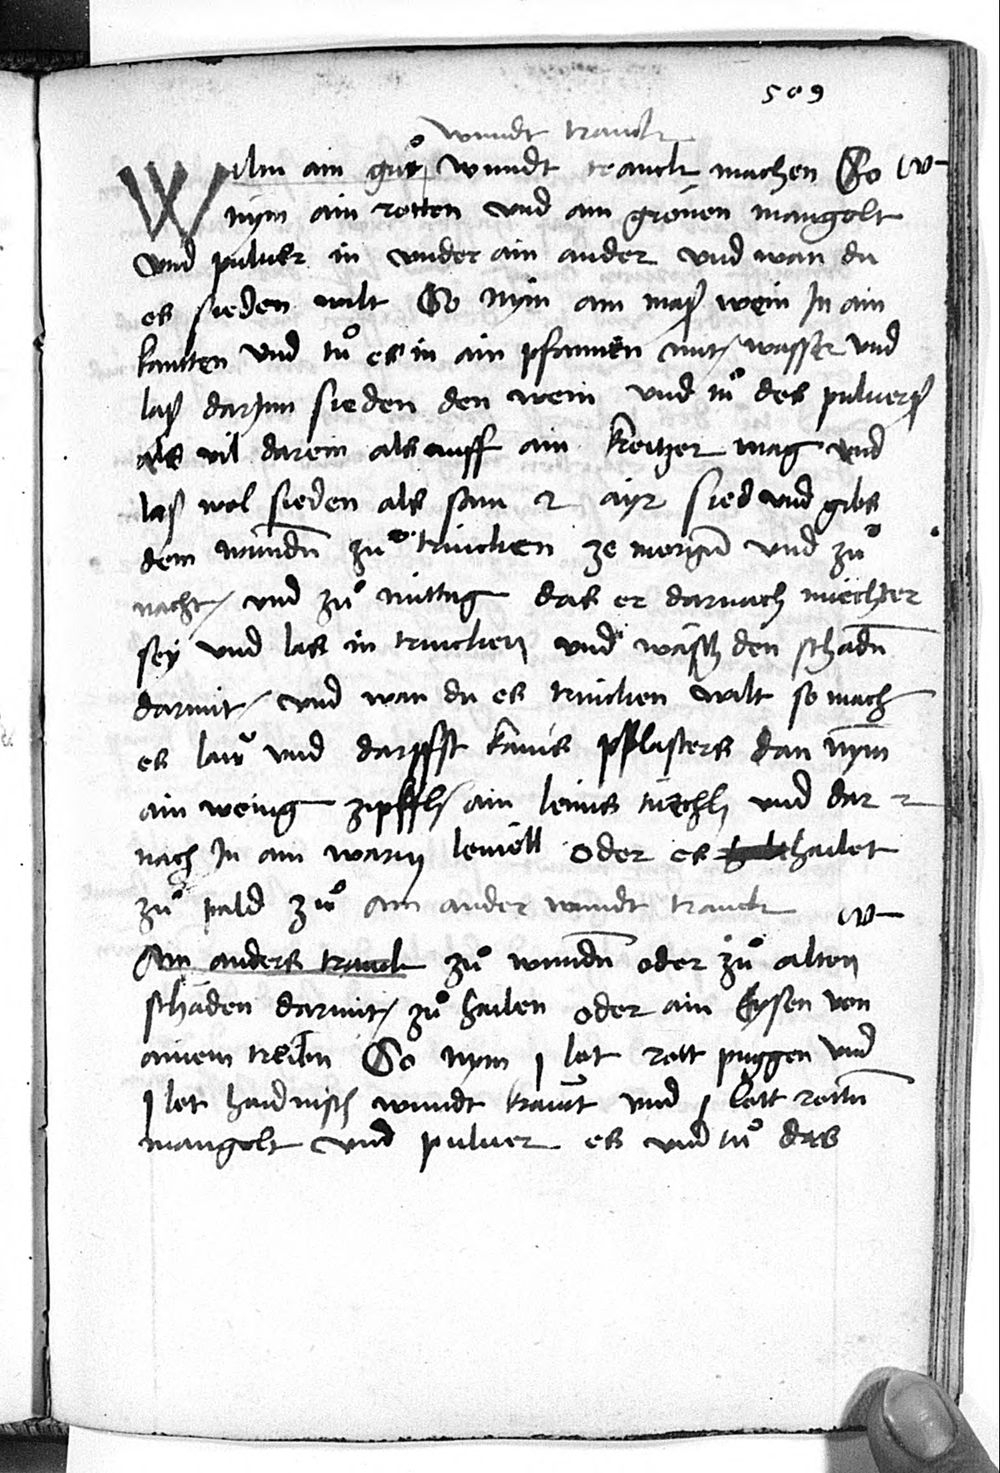 509
wundt tranck
Wilu ain gůt wundt tranck machen So
nym ain rotten vnd ain gronen mangolt
vnd puluer in vnder ain ander vnd wan du
es sieden wilt So Nym ain maß wein In ain
kantten vnd tů es in ain pfannen mit wasser vnd
laß darInn sieden den wein vnd tů des puluerß
als vil darein als auff ain kreitzer mag vnd
laß wol sieden als sam 2 ayr sied vnd gibs
dem wundn̄ zů trincken ze morgn̄ vnd zů
nacht vnd zů mittag das er darnach nüechter
sey vnd las in trincken vnd wäsch den schadn̄
darmit vnd wan du es trincken wilt so mach
es law vnd darffst kains pflasters dan nym
ain wenig zipffl ain leinis tüechl vnd dar
nach In ain warm leinöll oder es hailet
zů pald zů ain ander wundt tranck
Ain anders tranck zů wundn̄ oder zů alten
schäden darmit zů hailen oder ain Eysen von
ainem treibn So nym 1 lot rott puggen vnd
1 lot haidnisch wundt kraut vnd 1 lott rottn̄
mangolt vnd puluer es vnd tů das